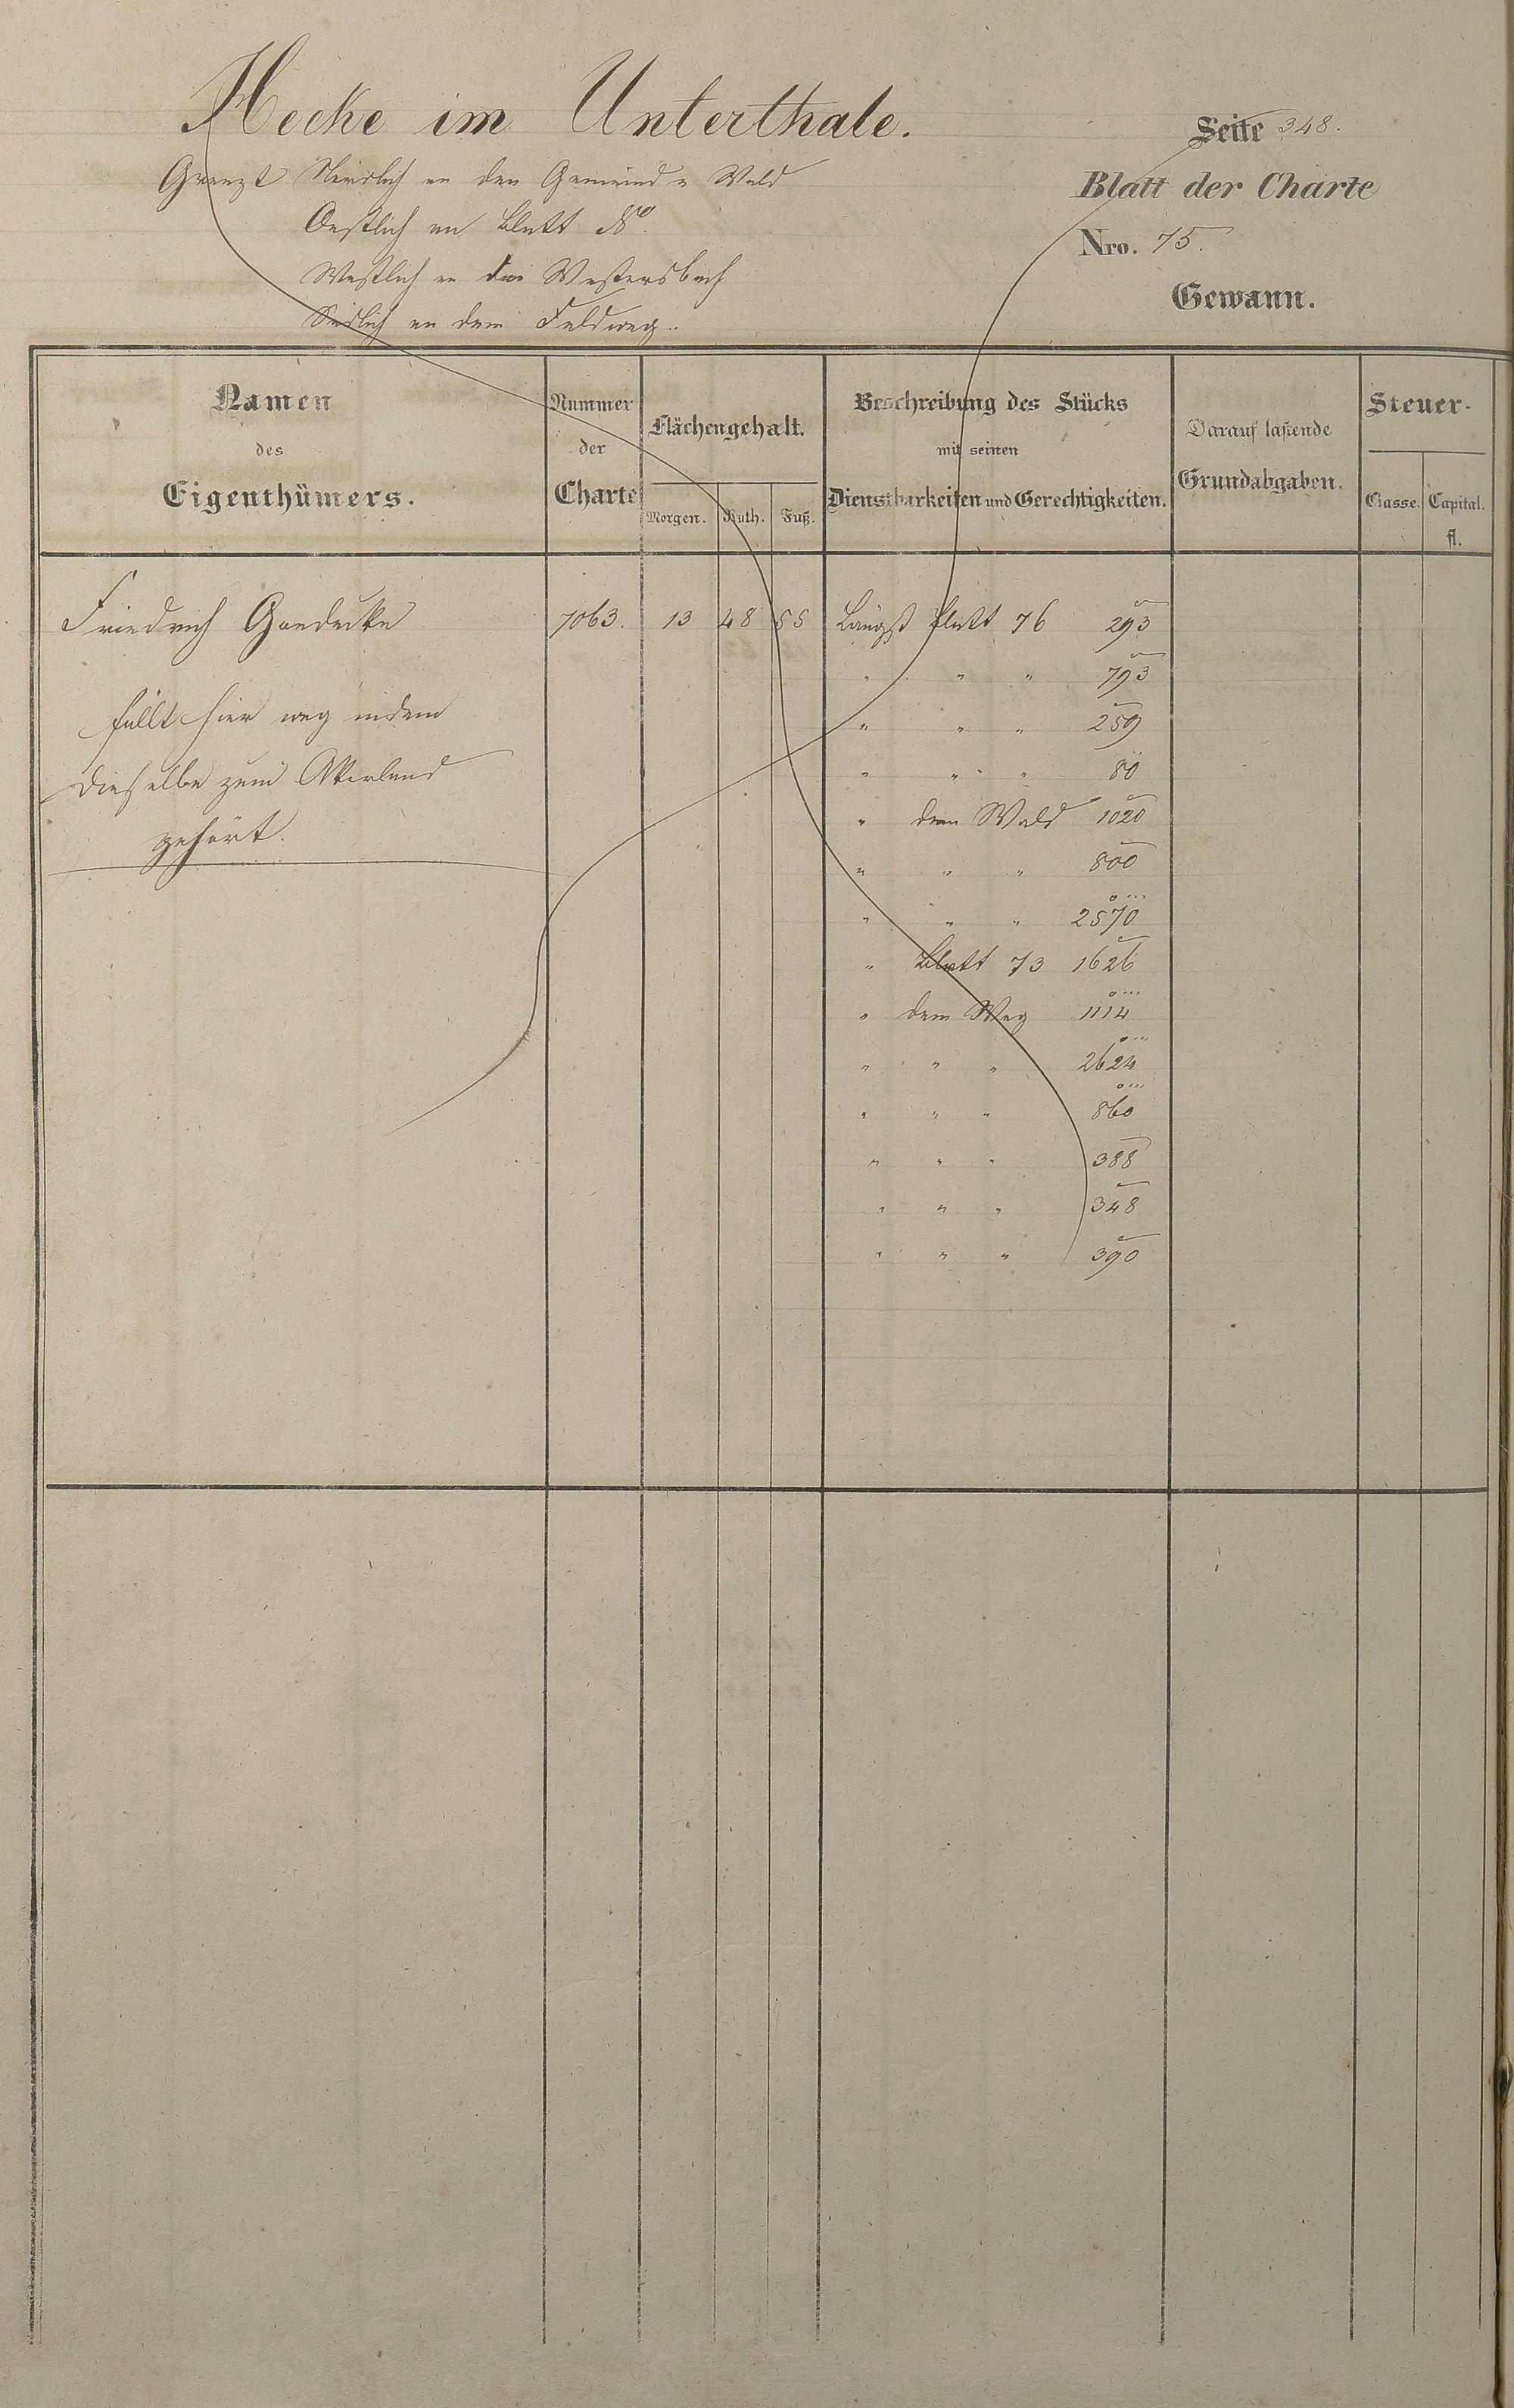 Hecke im Unterthale.
Seite 348.
Grenzt Nördlich an den Gemeind = Wald
Blatt der Charte
Oestlich an Blatt
Nro. 75.
Westlich an Westersbach
Gewann.
Südlich an dem Feldweg.
Namen
des
Eigenthümers.
Nummer
der
Charte
Flächengehalt.
Morgen. Ruth. Fuß.
Beschreibung des Stücks
mit seinen
Dienstbarkeiten und Gerechtigkeiten.
Darauf lastende
Grundabgaben.
Steuer-
Classe. Capital.
fl.
Friedrich Goedecke 7063. 13 48 55 Längst Blatt 76 293
" " " 793
fällt hier weg indem
" " " 259
dieselbe zum Akerland
" " " 80
gehört.
" dem Wald 1020
" " " 800
" " " 2570
" Blatt 73 1626
" dem Weg 1114
" " " 2624
" " " 860
" " " 388
" " " 348
" " " 390